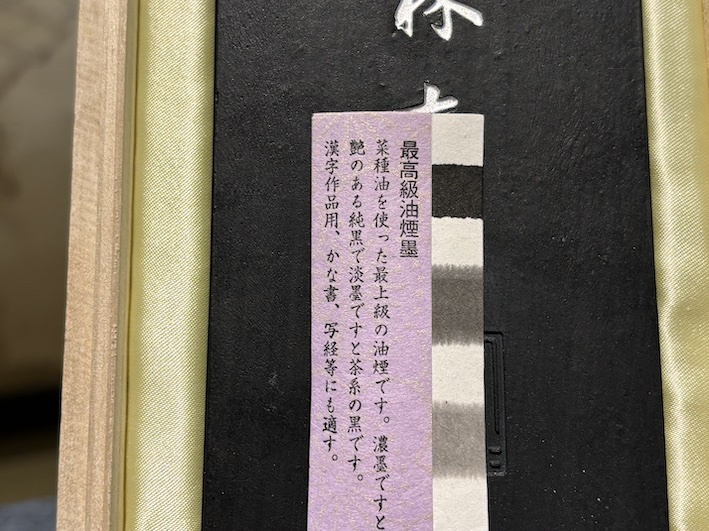 林
最高級油煙墨
菜種油を使った最上級の油煙です。濃墨ですと
艶のある純黒で淡墨ですと茶系の黒です。
漢字作品用、かな書、写経等にも適す。